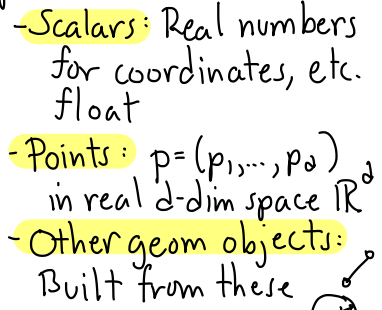 - Scalars: Real numbers
for coordinates, etc.
float
- Points: p=(p₁,..., p_d)
in real d-dim space ℝᵈ
- Other geom objects:
Built from these